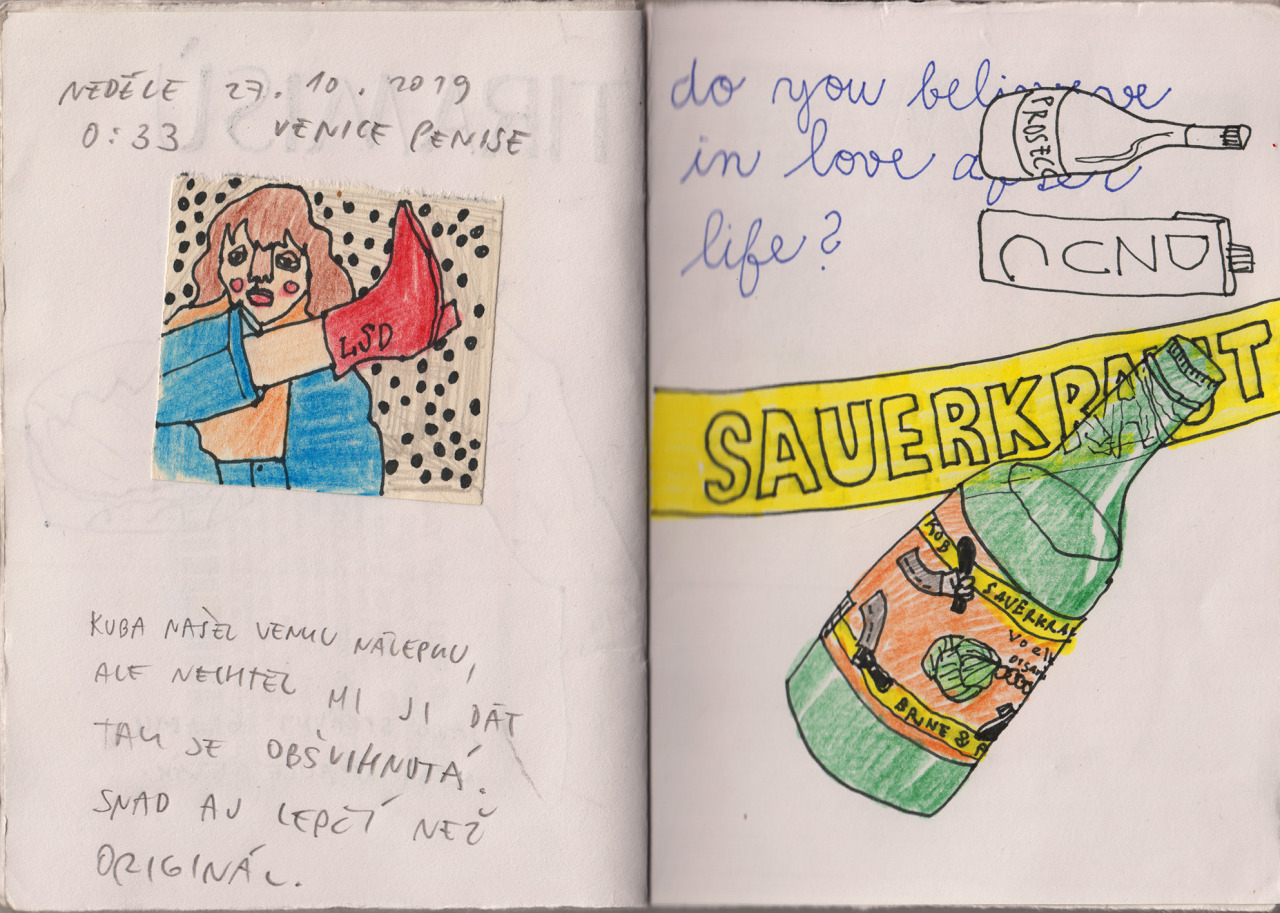 NEDĚLE 27.10.2019
0:33 VENICE PENISE
LSD
KUBA NAŠEL VENKU NÁLEPKU,
ALE NECHTĚL MI JI DÁT
TAK JE OBŠVIHNUTÁ.
SNAD AJ LEPČÍ NEŽ
ORIGINÁL.
do you believe
in love after
life?
PROSECC
SAUERKRAUT
KUB
SAUERKRA
BRINE &